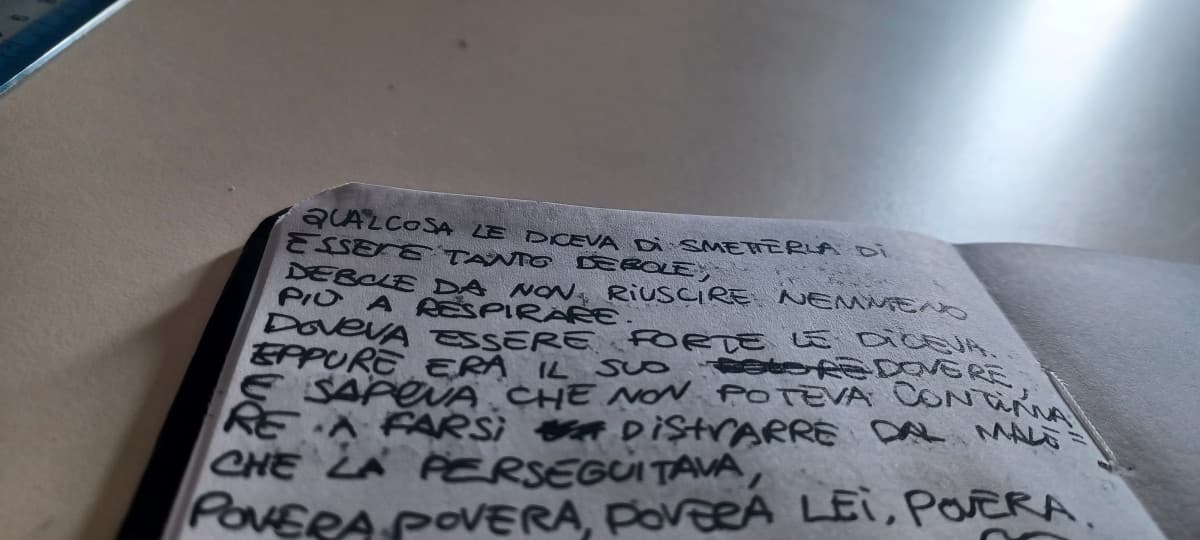 QUALCOSA LE DICEVA DI SMETTERLA DI
ESSERE TANTO DEBOLE,
DEBOLE DA NON RIUSCIRE NEMMENO
PIÙ A RESPIRARE.
DOVEVA ESSERE FORTE LE DICEVA.
EPPURE ERA IL SUO DOVERE,
E SAPEVA CHE NON POTEVA CONTINUA=
RE A FARSI DISTRARRE DAL MALE
CHE LA PERSEGUITAVA,
POVERA, POVERA, POVERA LEI, POVERA.